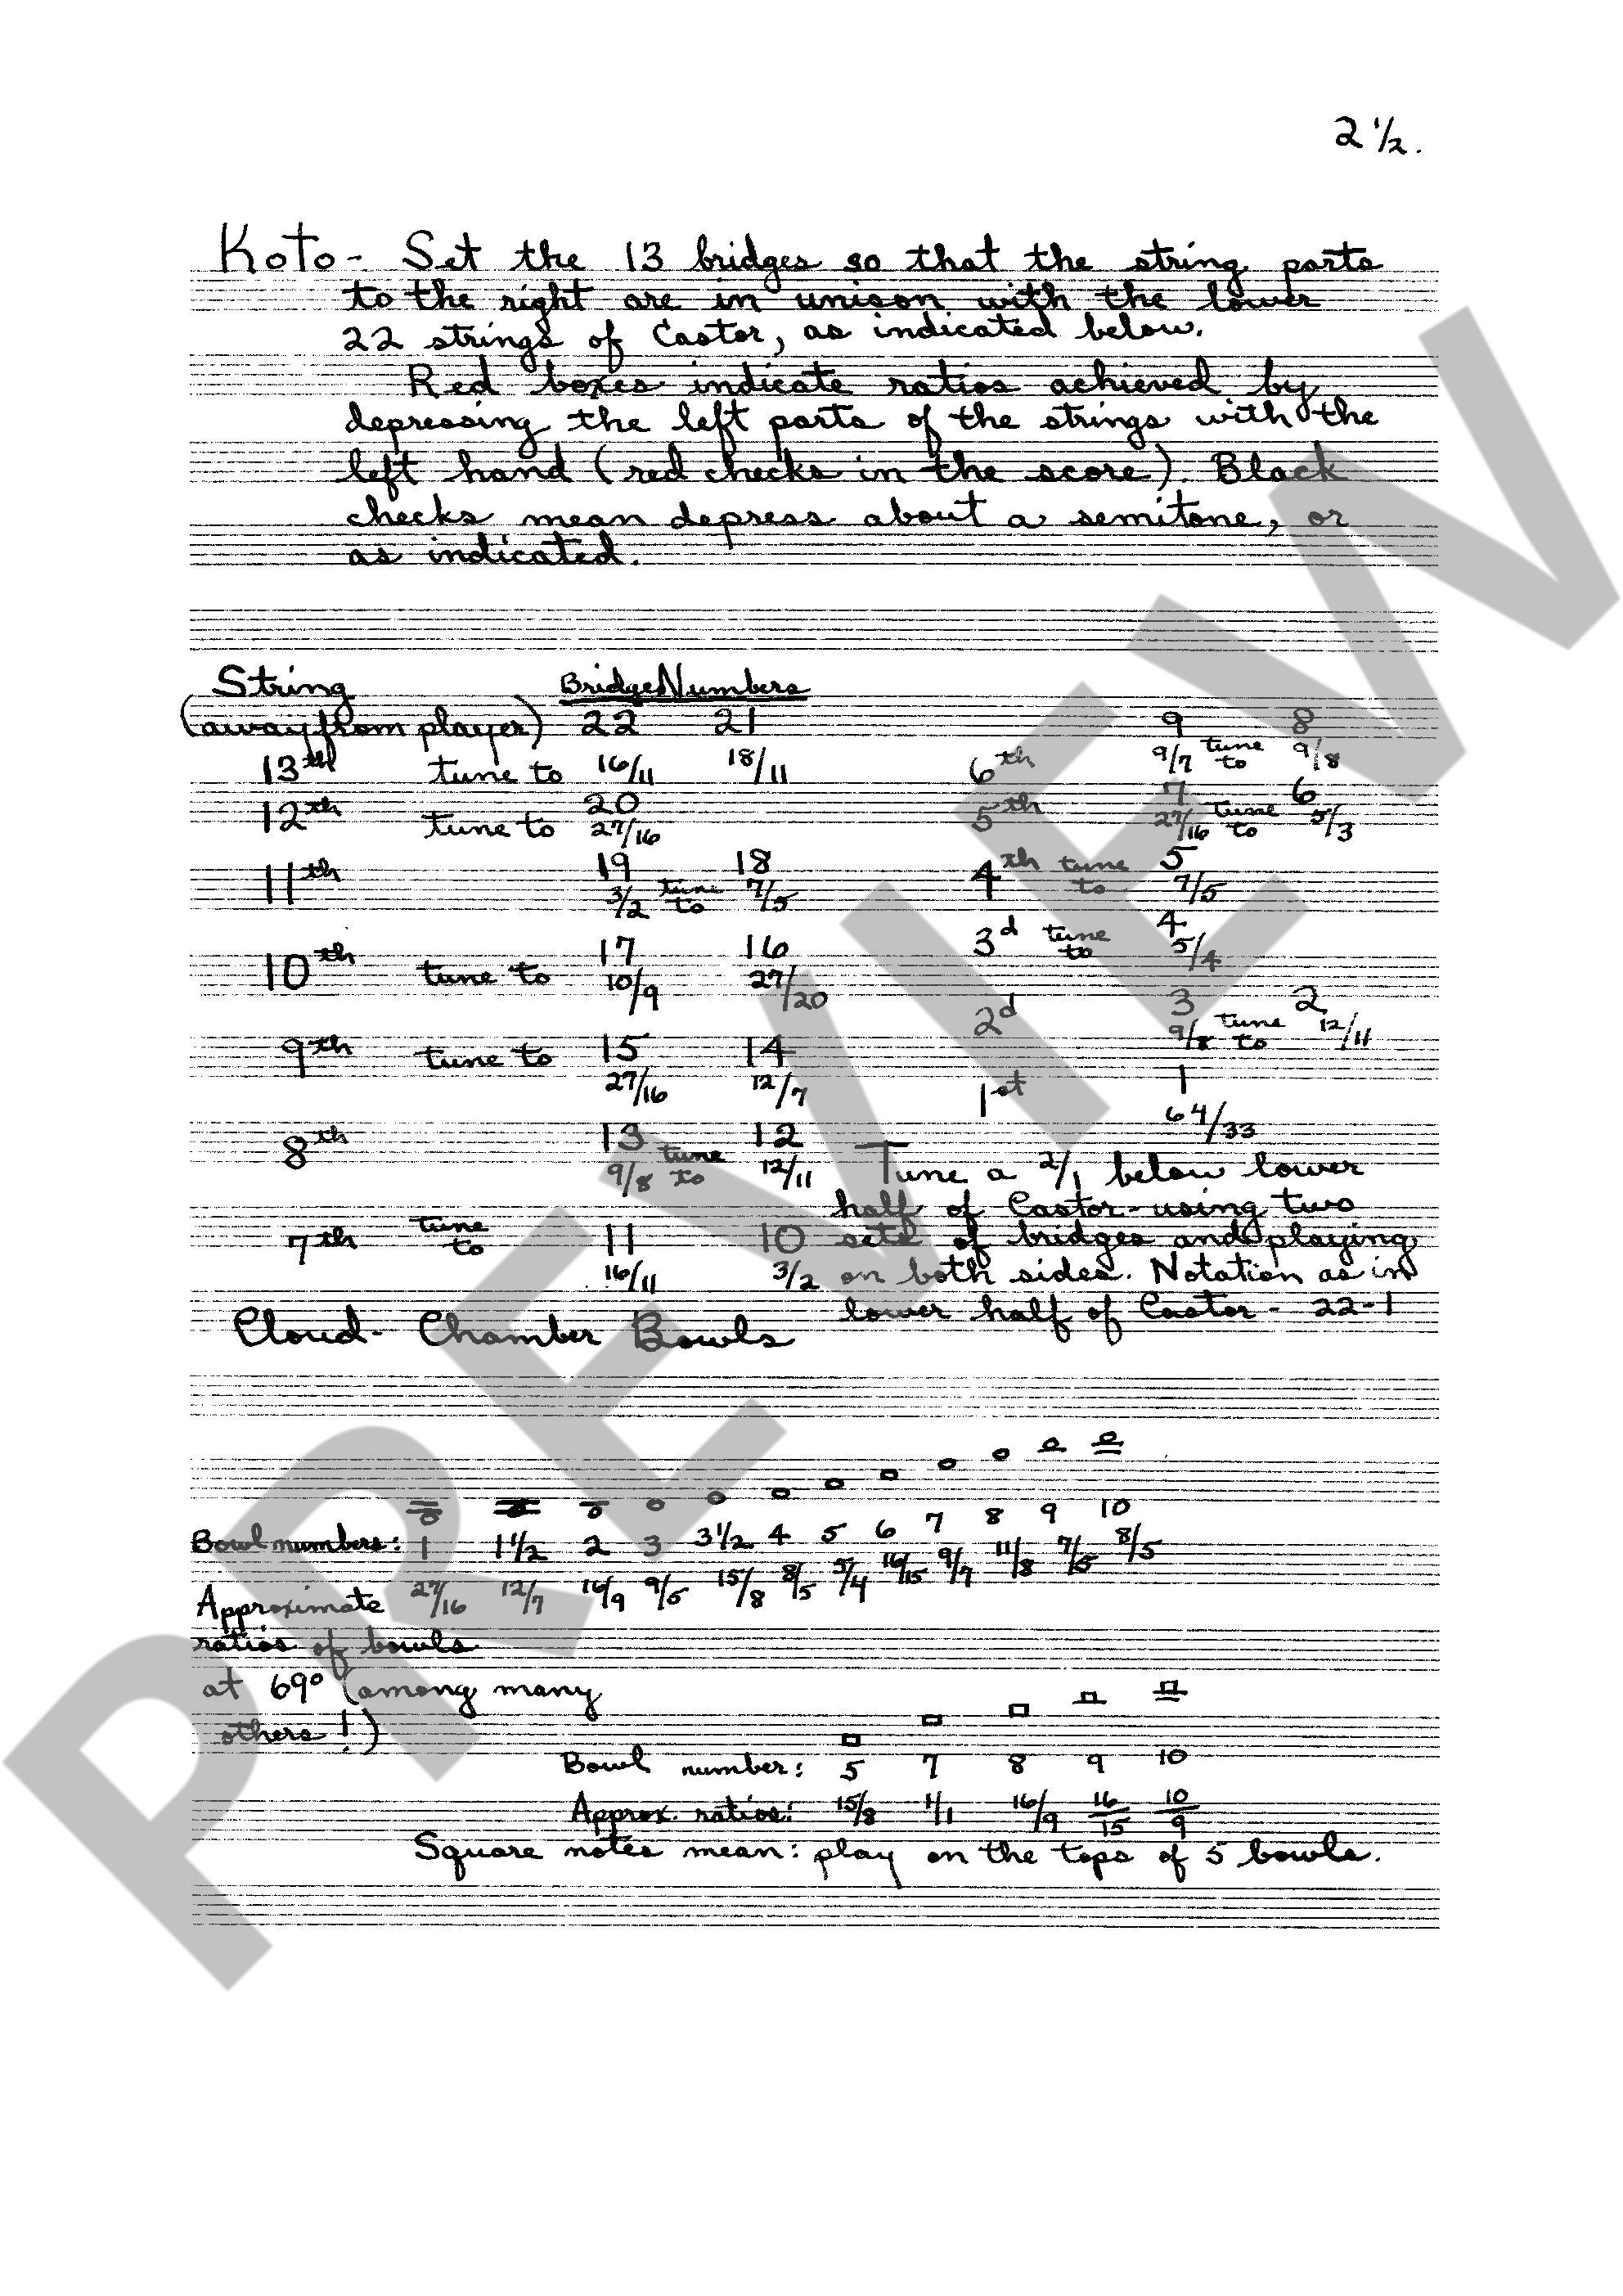 2 1/2.
Koto - Set the 13 bridges so that the string parts
to the right are in unison with the lower
22 strings of Castor, as indicated below.
Red boxes indicate ratios achieved by
depressing the left parts of the strings with the
left hand (red checks in the score). Black
checks mean depress about a semitone, or
as indicated.
String Bridge Numbers
(away from player) 22 21
13th tune to 16/11 18/11
20
12th tune to 27/16
19 18
11th 3/2 tune to 7/5
17 16
10th tune to 10/9 27/20
9th tune to 15 14
27/16 12/7
13 12
8th 9/8 tune to 12/11
7th tune to 11 10
16/11 3/2
9 8
6th 9/7 tune to 9/8
7 6
5th 27/16 tune to 5/3
5
4th tune to 7/5
4
3d tune to 5/4
3 2
2d 9/8 tune to 12/11
1
1st 64/33
Tune a 2/1 below lower
half of Castor - using two
sets of bridges and playing
on both sides. Notation as in
lower half of Castor - 22-1
Cloud-Chamber Bowls
Bowl numbers: 1 1 1/2 2 3 3 1/2 4 5 6 7 8 9 10
Approximate 27/16 12/7 16/9 9/5 15/8 8/5 5/4 16/15 9/7 11/8 7/5 8/5
ratios of bowls
at 69° (among many
others!)
Bowl number: 5 7 8 9 10
Approx. ratios: 15/8 1/1 16/9 16/15 10/9
Square notes mean: play on the tops of 5 bowls.
PREVIEW